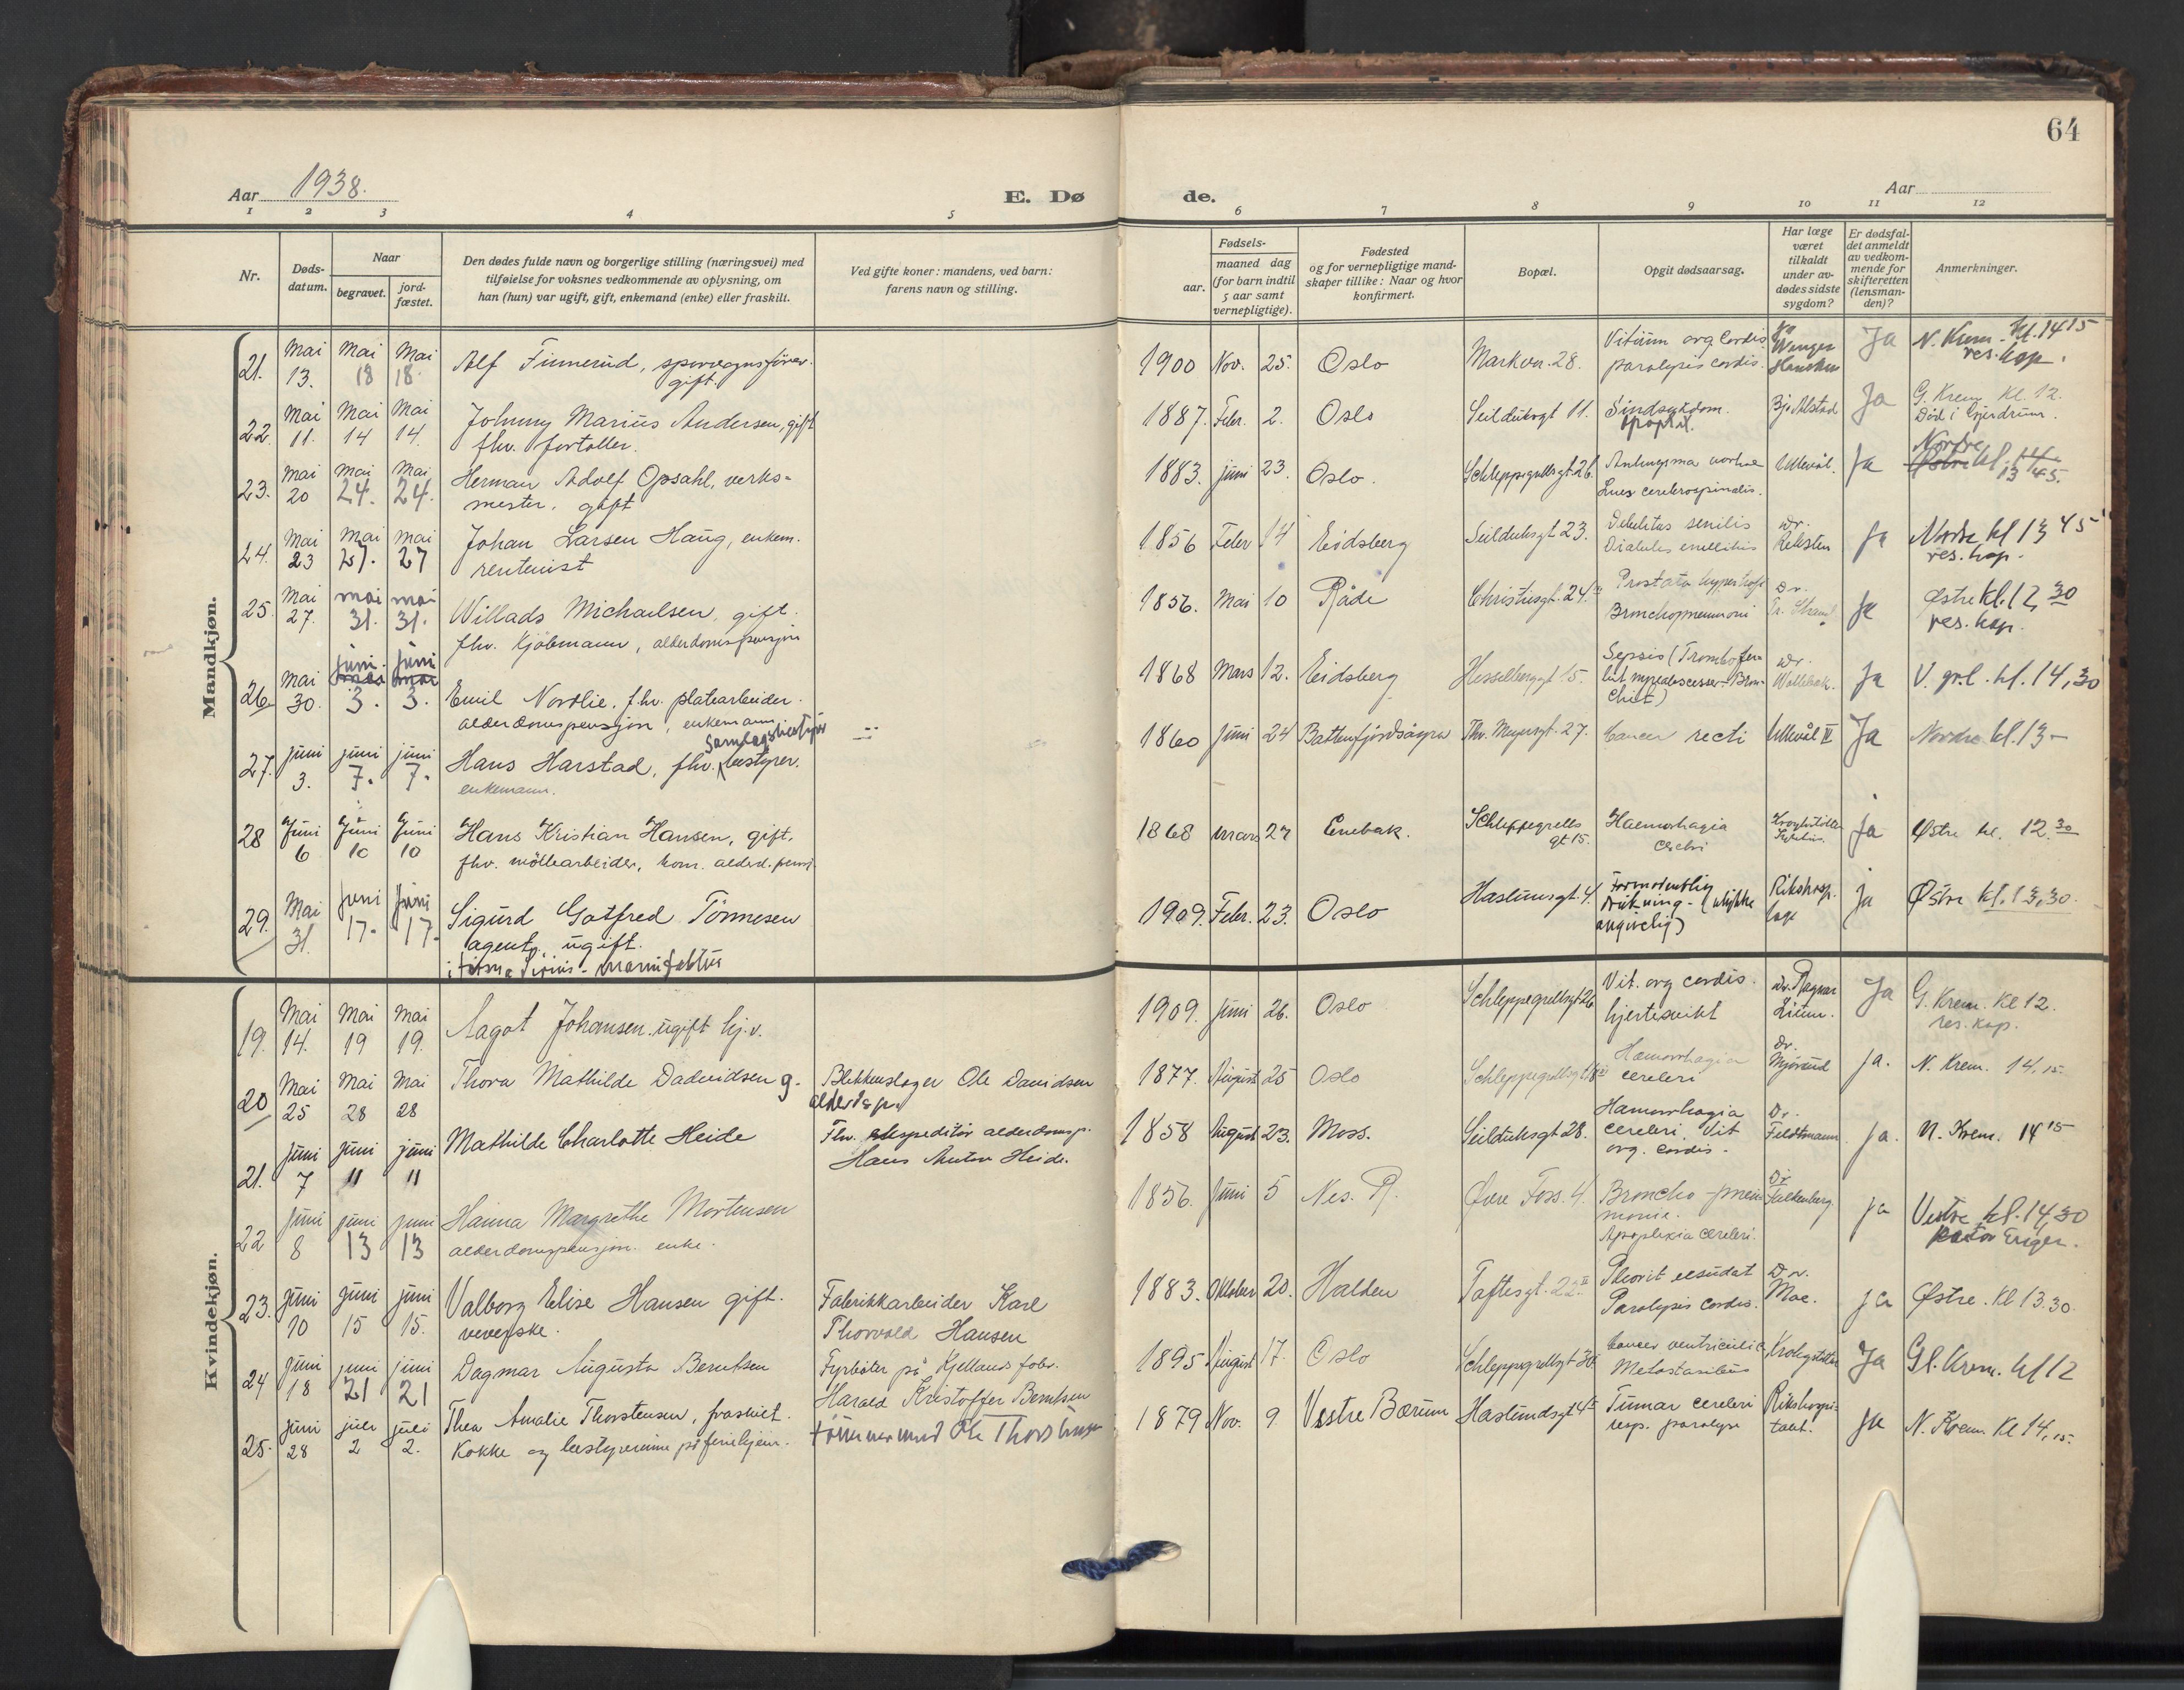 64
Aar 1938.
E. Dø
de.
Aar
1 2 3 4 5
6 7 8 9 10 11 12
Nr.
Døds-
datum.
Naar
begravet.
jord-
fæstet.
Den dødes fulde navn og borgerlige stilling (næringsvei) med
tilføielse for voksnes vedkommende av oplysning, om
han (hun) var ugift, gift, enkemand (enke) eller fraskilt.
Ved gifte koner: mandens, ved barn:
farens navn og stilling.
Fødsels-
aar.
maaned dag
(for barn indtil
5 aar samt
vernepligtige).
Fødested
og for vernepligtige mand-
skaper tillike: Naar og hvor
konfirmert.
Bopæl.
Opgit dødsaarsag.
Har læge
været
tilkaldt
under av-
dødes sidste
sygdom?
Er dødsfal-
det anmeldt
av vedkom-
mende for
skifteretten
(lensman-
den)?
Anmerkninger.
Mandkjøn.
21. Mai 13. Mai 18 Mai 18. Alf Finnerud, sporvognsfører.
gift.
1900 Nov. 25. Oslo Markvn. 28. Vitium org. Cordis
paralysis cordis. Ja N. Krem. kl. 14 15
res. kap.
22. Mai 11. Mai 14 Mai 14. Johnny Marius Andersen, gift
fhv. fortoller.
1887. Febr. 2. Oslo Seilduksgt 11. Sindsykdom. Ja G. Krem. Kl. 12.
Död i Gjerdrum.
23. Mai 20 Mai 24. Mai 24. Herman Adolf Opsahl, verks-
mester, gift
1883. juni 23. Oslo. Schleppegrellsgt. 26. Lues cerebrospinalis. Ullevål. Ja Nordre
24. Mai 23 Mai 27. mai 27 Johan Larsen Haug, enkem.
rentenist
1856 Febr 14 Eidsberg Seilduksgt 23. Debilitas senilis
Dr. Reksten Ja Nordre kl 13 45
res. kap.
25. Mai 27. mai 31. mai 31. Willads Michaelsen, gift.
fhv. Kjöbmann, alderdomspensjon
1856. Mai 10 Råde Christiesgt. 24. Prostata hypertrofi
Bronchopneumoni Dr. Ja Østre kl. 12,30
res. kap.
26. Mai 30. juni 3. juni 3. Emil Nordlie, fhv. platearbeider.
alderdomspensjon, enkemann.
1868 Mars 12. Eidsberg Hesselbergsgt 15. Sepsis Dr. Ja V. grl. kl. 14,30
27. juni 3. juni 7. juni 7. Hans Harstad, fhv. bestyrer.
enkemann.
1860 Juni 24 Battenfjordsöyra Th. Meyersgt. 27. Cancer recti Ullevål Ja Nordre kl. 13-
28 Juni 6 Juni 10 Juni 10 Hans Kristian Hansen, gift,
fhv. möllearbeider, kom. alderd. pensj.
1868 mars 27 Enebak. Schleppegrells
gt 15. Haemorhagia
cerebri ja Østre kl. 12.30
29. Mai 31. juni 17. juni 17. Sigurd Gotfred Tönnesen
agent, ugift.
i firma Sirius - manufaktur
1909. Febr. 23. Oslo Haslumsgt. 4. Formodentlig
drukning - (ulykke
angivelig) Rikshosp.
lege ja Østre kl. 13,30.
Kvindekjøn.
19. Mai 14. Mai 19 mai 19. Aagot Johansen. ugift hj.v.
1909. juni 26. Oslo Schleppegrellsgt 26 Vit. org cordis.
hjertesvikt Dr. Ragnar
Lium. Ja G. Krem. Kl 12.
res. kap.
20 Mai 25 Mai 28 Mai 28 Thora Mathilde Davidsen g. Blikkenslager Ole Davidsen
1877. August 25 Oslo Schleppegrellsgt Hæmorrhagia
cerebri Dr. ja. N. Krem. 14,15
21. juni 7 juni 11 juni 11 Mathilde Charlotte Heide Fhv. ekspeditör alderdomsp.
Hans Anton Heide.
1858 August 23. Moss. Seilduksgt 28. Hæmorrhagia
cerebri. Vit
org. cordis. Dr.
Feldtmann ja. N. Krem. 14 15
22 Juni 8 juni 13 juni 13 Hanna Margrethe Mortensen
alderdomspensjon. enke.
1856. Juni 5 Nes. R. Övre Foss. 4. Broncho-pneu
monie.
Apoplexia cerebri. Dr
Falkenberg. ja Vestre kl. 14,30
pastor Enger.
23. juni 10 juni 15 juni 15. Valborg Elise Hansen gift.
veverske. Fabrikkarbeider Karl
Thorvald Hansen
1883. Oktober 20. Halden Toftesgt. 22 Plevrit exsudat
Paralysis cordis. Dr.
Moe. ja Østre. Kl 13.30.
24 juni 18 juni 21 juni 21 Dagmar Augusta Berntsen Fyrböter på Kjellands fabr.
Harald Kristoffer Berntsen
1895 August 17. Oslo Schleppegrellsgt 30 Cancer ventriculi c.
Metastasibus Ja Gl. Krem. kl 12
25. juni 28 juli 2 juli 2. Thea Amalie Thorstensen, fraskilt.
Kokke og bestyrerinne på feriehjem. tömmermand Ole Thorstensen
1879 Nov. 9. Vestre Bærum Haslumsgt 4 Tumor cerebri
resp. paralyse Rikshospi-
talet. ja N. Krem. Kl 14,15.